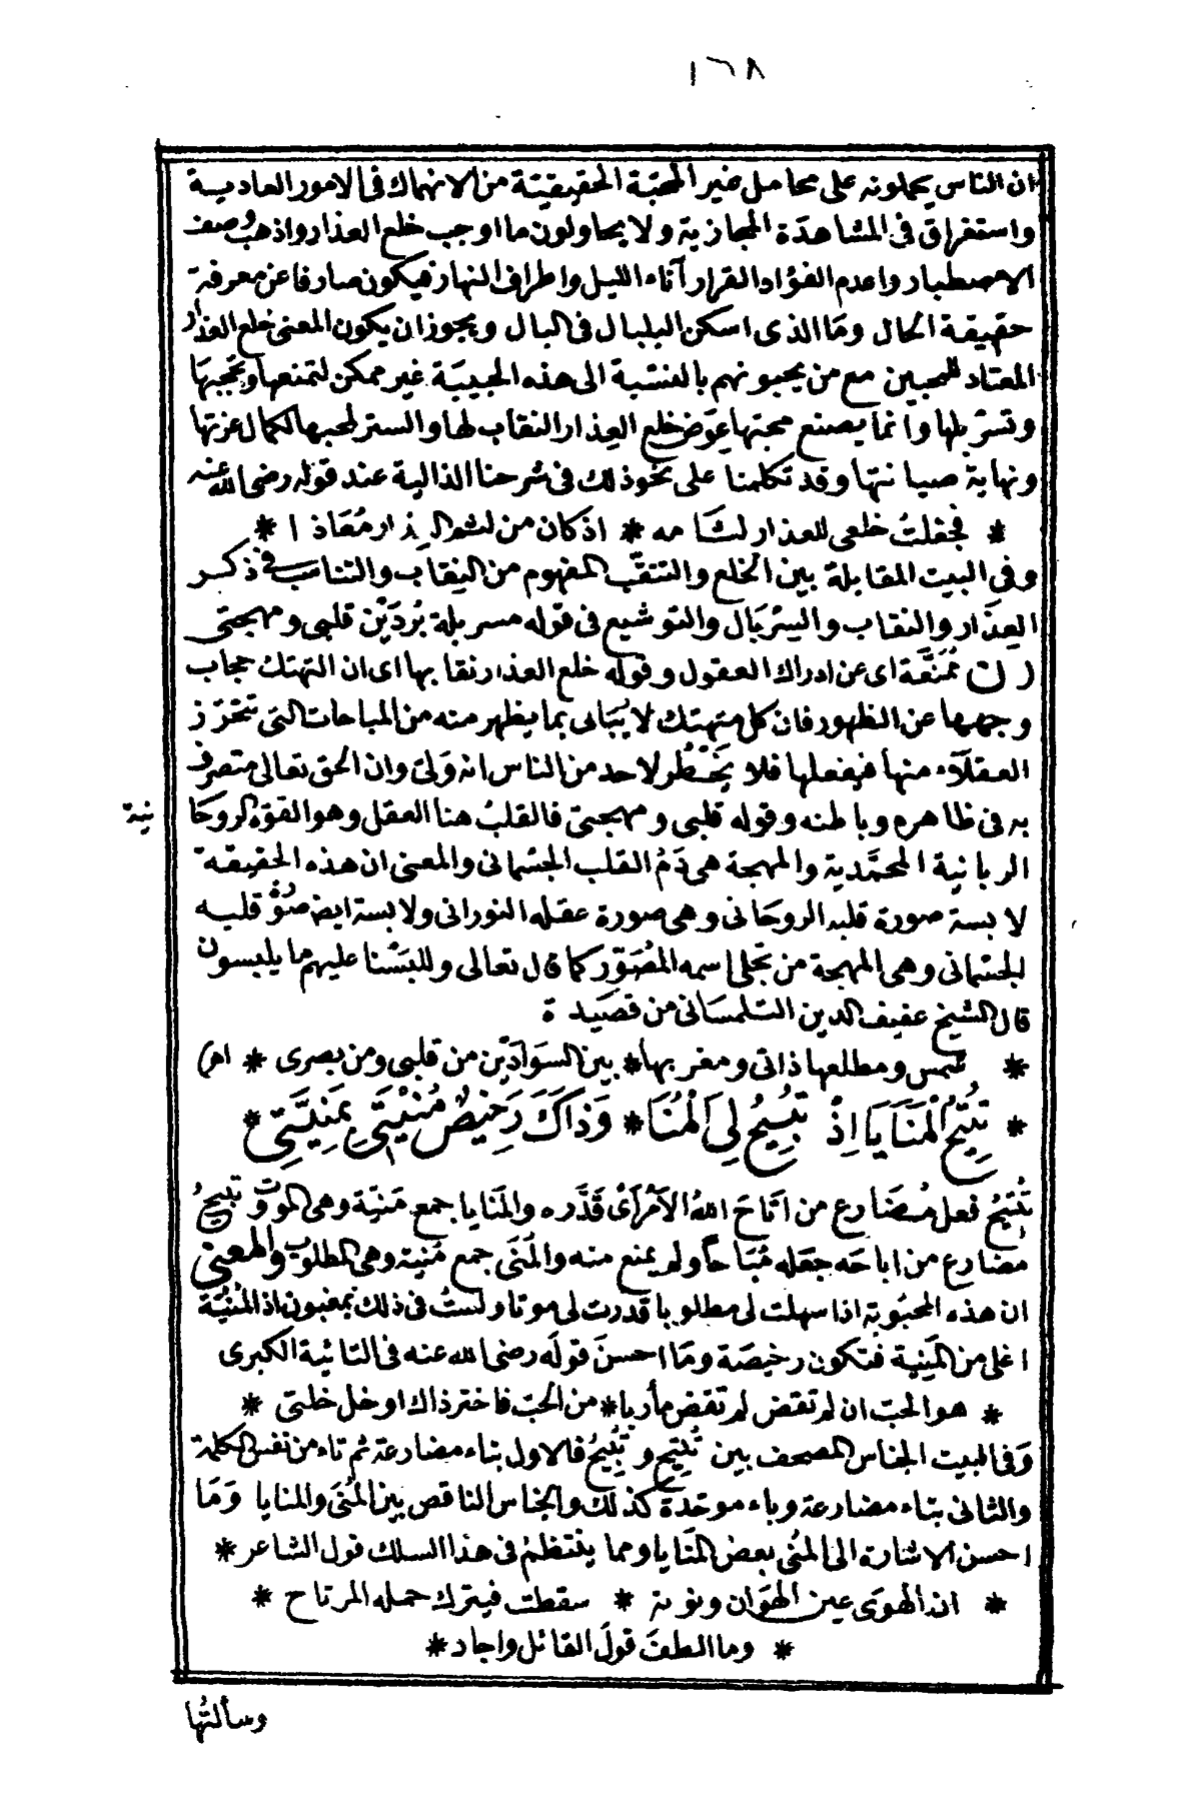 ١٦٨
ان الناس يحملونه على محامل غير المحبّة الحقيقيّة من الانهماك فى الامور العادية
واستغراق فى المشاهدة المجازية ولا يحاولون ما اوجب خلع العذار واذهب وصف
الاصطبار واعدم الفؤاد القرار آناء الليل واطراف النهار فيكون صارفا عن معرفة
حقيقة الحال وما الذى اسكن البلبال فى البال ويجوز ان يكون المعنى خلع العذار
المعتاد للمحبين مع من يحبونهم بالنسبة الى هذه الحبيبة غير ممكن لتمنعها وتحجبها
وتسربلها وانما يصنع محبتها عوض خلع العذار النقاب لها والستر لحبها لكمال عزتها
ونهاية صيانتها وقد تكلمنا على نحو ذلك فى شرحنا الذالية عند قوله رضى الله عنه
* فجعلتُ خلعى للعذار لثامه * اذ كان من لثم العذار مُعَاذا *
وفى البيت المقابلة بين الخلع والتنقّب المفهوم من النقاب والتناسب فى ذكر
العِذَار والنقاب والسِرْبَال والتوشيع فى قوله مسربلة بُرْدَيْن قلبى ومهجتى
(ن) مُمَنَّعَة اى عن ادراك العقول وقوله خلع العذار نقابها اى ان التهتك حجاب
وجهها عن الظهور فان كل متهتك لا يُبَالى بما يظهر منه من المباحات التى تتحرّز
العقلآء منها فيفعلها فلا يَخْطُر لاحد من الناس انه وَلىّ وان الحق تعالى متصرف
به فى ظاهره وباطنه وقوله قلبى ومهجتى فالقلبُ هنا العقل وهو القوّة الروحا
نية
الربانية المحمّدية والمهجة هى دَمُ القلب الجسمانى والمعنى ان هذه الحقيقة
لابسة صورة قلبه الروحَانى وهى صورة عقله النورانى ولابسة ايضا صُوْرة قلبه
الجسمانى وهى المهجة من تجلى اسمه المُصَوِّر كما قال تعالى وللبَسْنا عليهم ما يلبسون
قال الشيخ عفيف الدين التلمسَانى من قصيدة
* شمس ومطلعها ذاتى ومغربها * بين السَوَادَيْن من قلبى ومن بصرى * اهـ)
* تُتِيْحُ الْمَنَايَا اِذْ تُبِيْحُ لِىَ الْمُنَا * وَذَاكَ رَخِيْصٌ مُنْيَتِى بِمَنِيَّتِى *
تُتيحُ فعل مُضَارع من اتَاحَ اللهُ الاَمْرَ اىْ قَدَّره والمَنايا جمع مَنيّة وهى الموْت وَتُبيحُ
مضارع من اباحَه جعَله مُبَاحًا ولم يمنع منه والمُنَى جمع مُنية وهى المطلوب والمعنى
ان هذه المحبُوبة اذا سهلت لى مطلوبا قدرت لى موتا ولستُ فى ذلك بمغبون اذ المُنْيَة
اغلى من المَنِية فتكون رخيصَة ومَا احسنَ قولَه رضى الله عنه فى التائية الكبرى
* هو الحبّ ان لم تقض لم تقض مأربا * من الحبّ فاختر ذاك او خل خلتى *
وَفى البيت الجناس المصحف بين تُتِيْح وتُبِيْحُ فالاول بتاء مضارعة ثم تاء من نفس الكلمة
والثانى بتاء مضارعة وباء موحّدة كذلك والجناس الناقص بين المُنَى والمنايا وَمَا
احسن الاشارة الى المُنى بعض المَنَايا ومما ينتظمُ فى هذا السلك قول الشاعر *
* ان الهوَى عين الهوَان ونونه * سقطت فيترك حمله المرتاح *
* وما الطفَ قولَ القائل واجاد *
وسألتُها